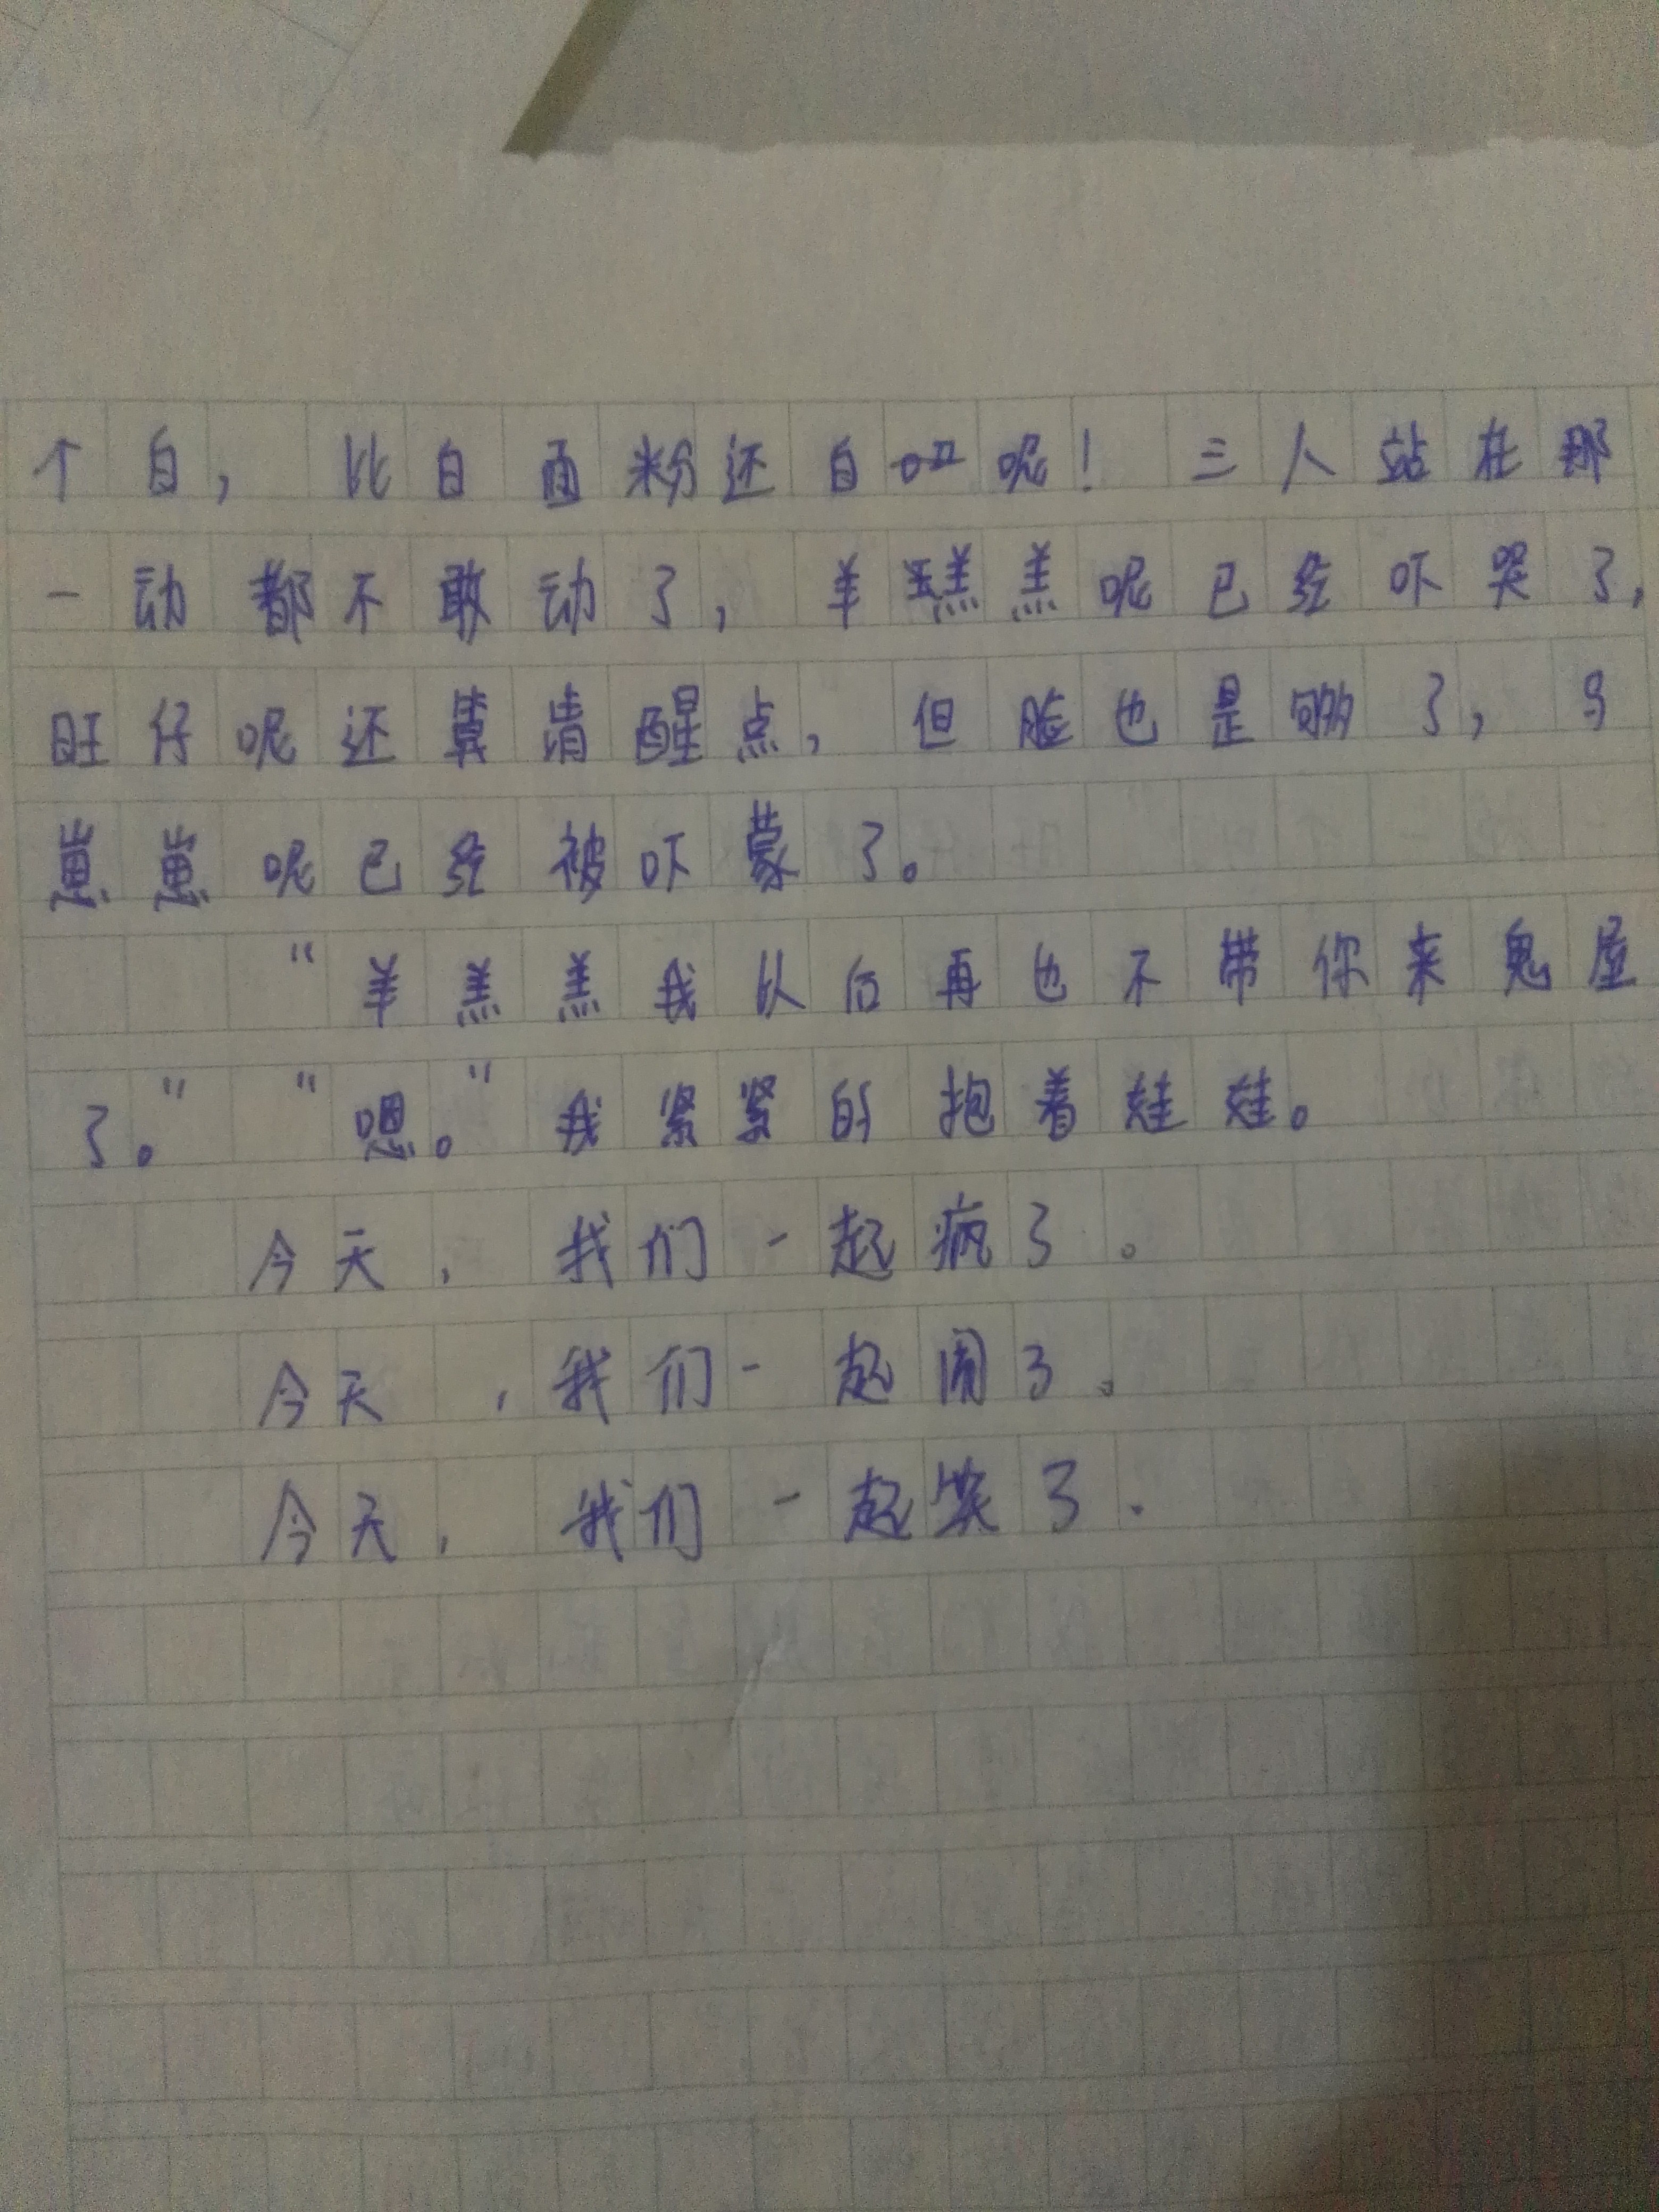 个白，比白面粉还白呢！三人站在那
一动都不敢动了，羊羔羔呢已经吓哭了，
旺仔呢还算清醒点，但脸也是够了，乌
崽崽呢已经被吓蒙了。
“羊羔羔我以后再也不带你来鬼屋
了。”“嗯。”我紧紧的抱着娃娃。
今天，我们一起疯了。
今天，我们一起闹了。
今天，我们一起笑了.